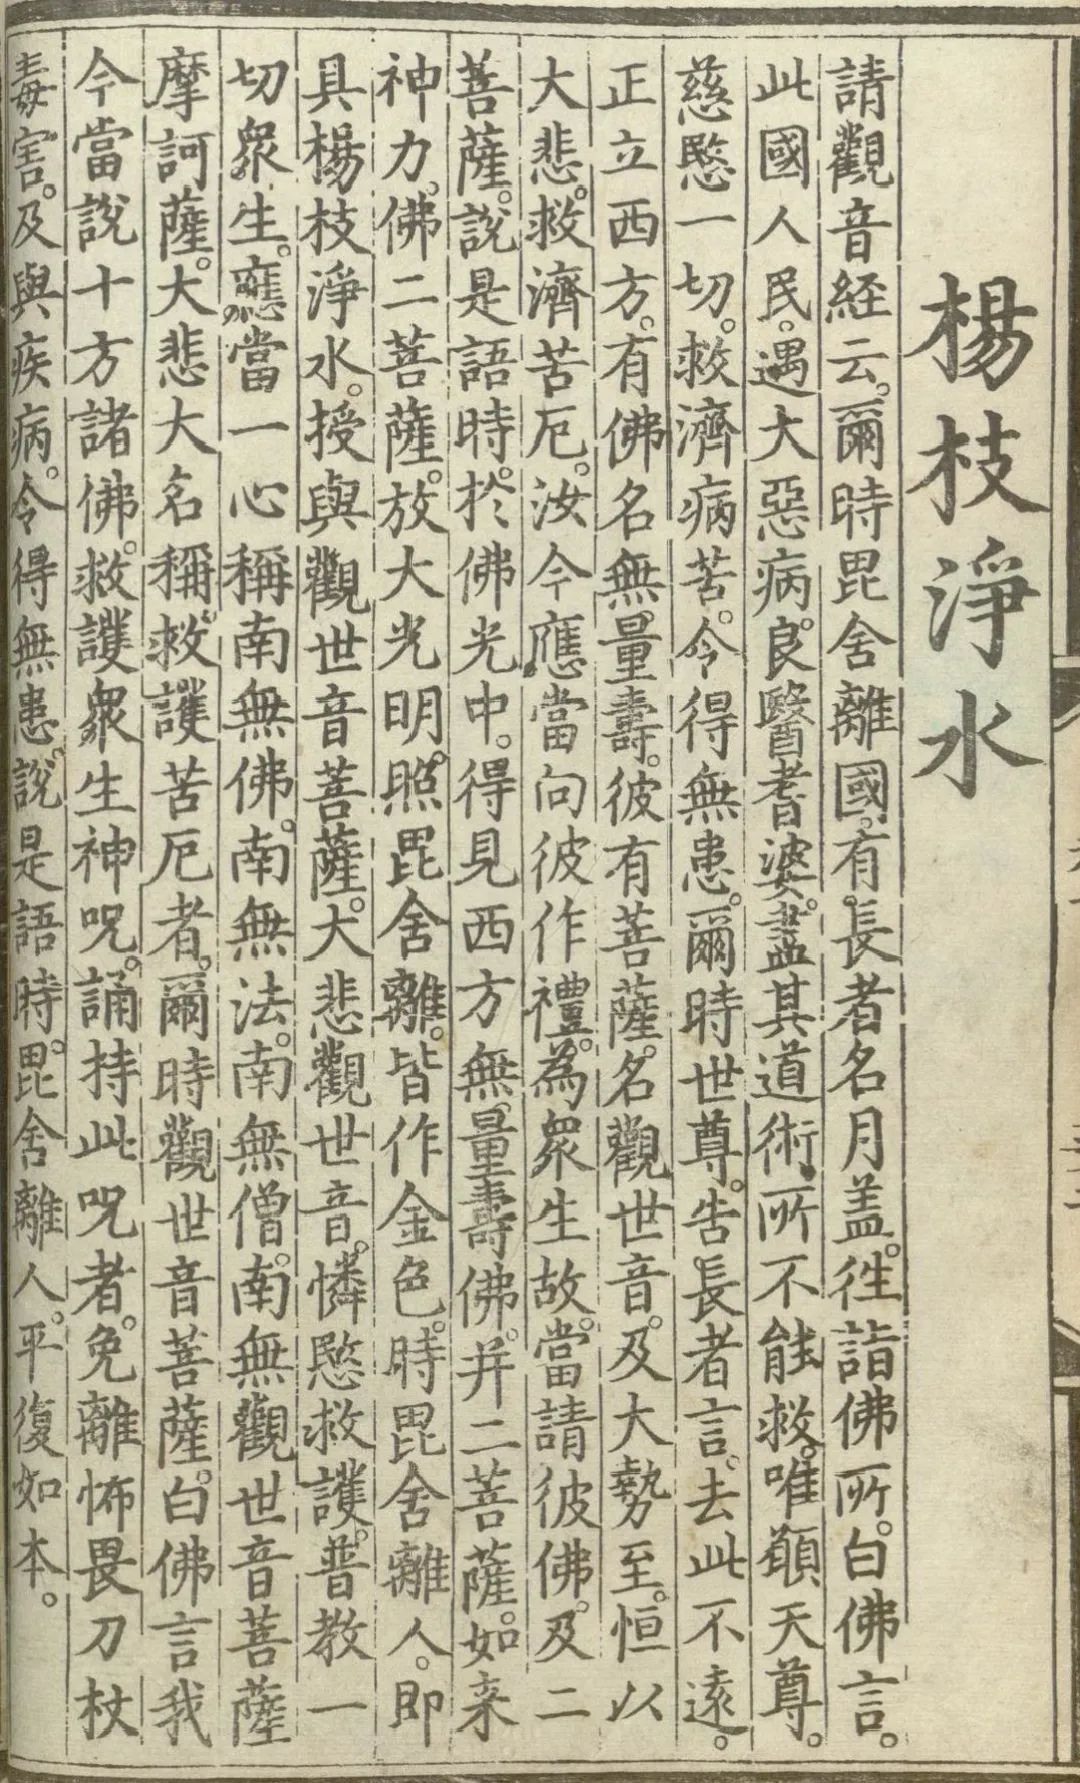 楊枝淨水
請觀音経云。爾時毘舍離國。有長者名月盖。徃詣佛所。白佛言。
此國人民。遇大惡病。良醫耆婆。盡其道術。所不能救。唯願天尊。
慈愍一切。救濟病苦。令得無患。爾時世尊。告長者言。去此不遠。
正立西方。有佛名無量壽。彼有菩薩。名觀世音。及大勢至。恒以
大悲。救濟苦厄。汝今應當向彼作禮。為衆生故。當請彼佛。及二
菩薩。說是語時。扵佛光中。得見西方無量壽佛。并二菩薩。如来
神力。佛二菩薩。放大光明。照毘舍離。皆作金色。時毘舍離人。即
具楊枝淨水。授與觀世音菩薩。大悲觀世音。憐愍救護。普教一
切衆生。應當一心稱南無佛。南無法。南無僧。南無觀世音菩薩
摩訶薩。大悲大名稱。救護苦厄者。爾時觀世音菩薩。白佛言我
今當說十方諸佛。救護衆生神呪。誦持此呪者。免離怖畏刀杖
毒害。及與疾病。令得無患。說是語時。毘舍離人。平復如本。